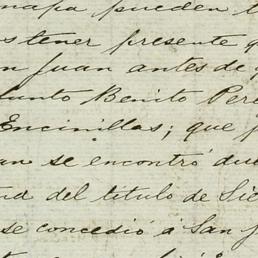 mapa pueden t
s tener presente q
n Juan antes de q
funto Benito Pere
Encinillas; que f
an se encontró due
ud del titulo de Sic
se concedió a San J